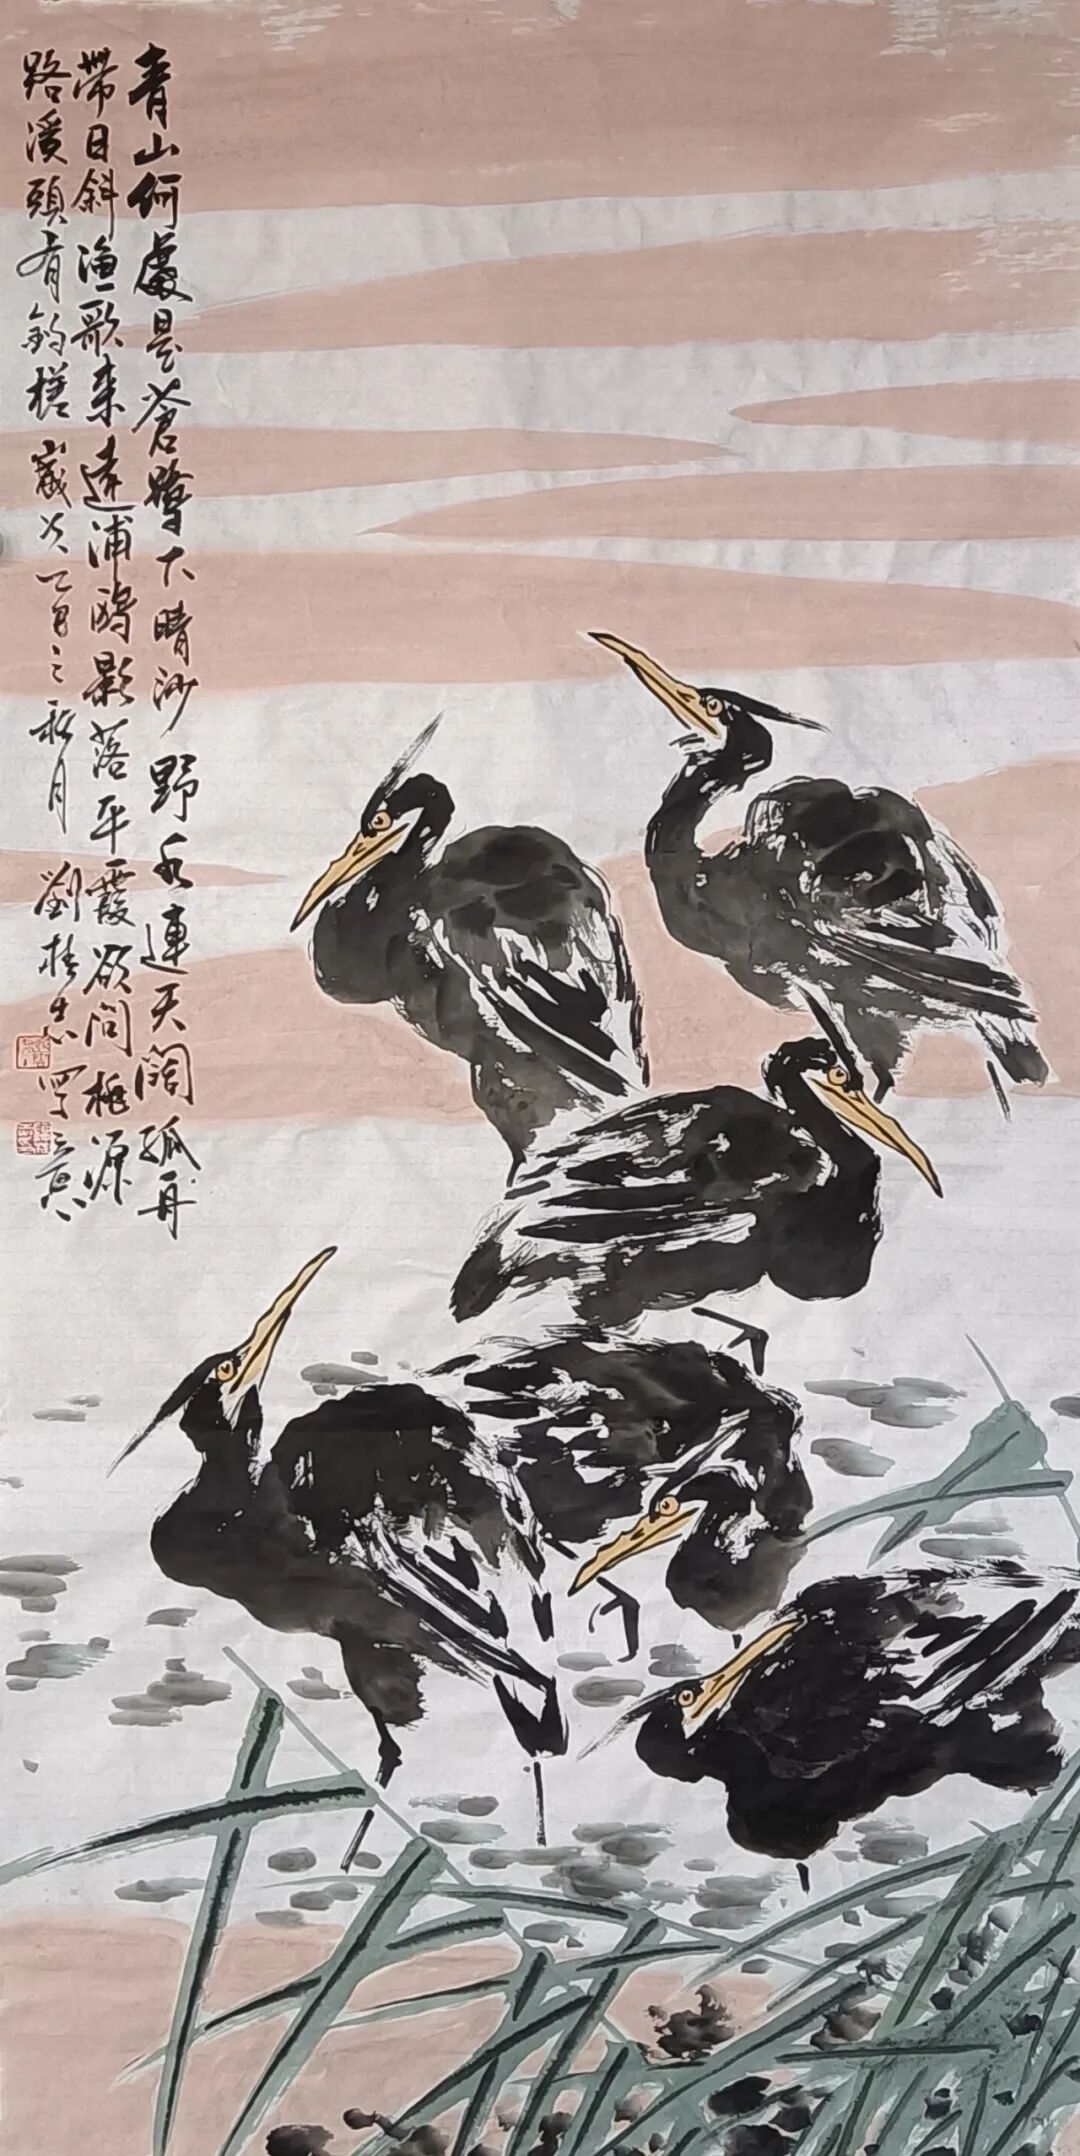 青山何處是蒼鷺下晴沙野水連天闊孤舟
帶日斜漁歌來遠浦鷗影落平霞欲問桃源
路溪頭有釣槎歲次乙巳之秋月劉桂寫意